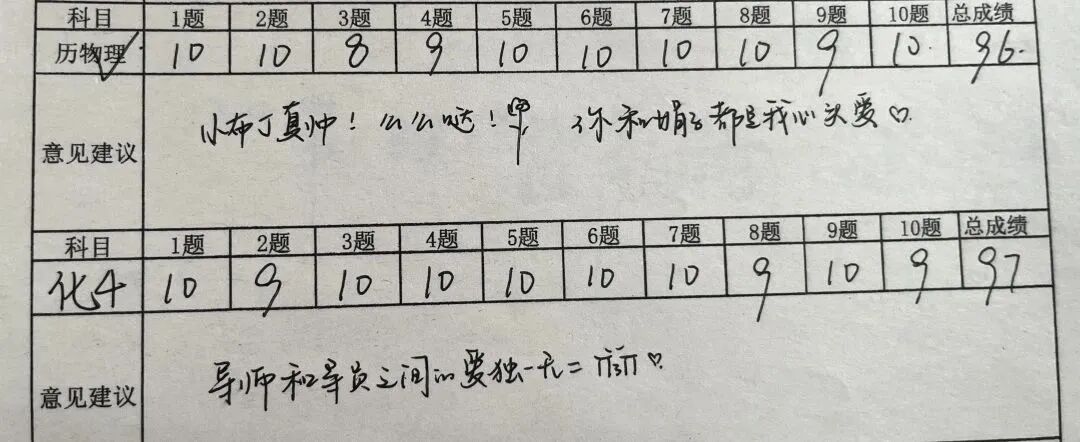 科目 1题 2题 3题 4题 5题 6题 7题 8题 9题 10题 总成绩
历物理✓ 10 10 8 9 10 10 10 10 9 10. 96.
意见建议 小布丁真帅！么么哒！ 你和娟子都是我心头爱♡
科目 1题 2题 3题 4题 5题 6题 7题 8题 9题 10题 总成绩
化4 10 9 10 10 10 10 10 9 10 9 97
意见建议 导师和导员之间的爱独一无二 ♡